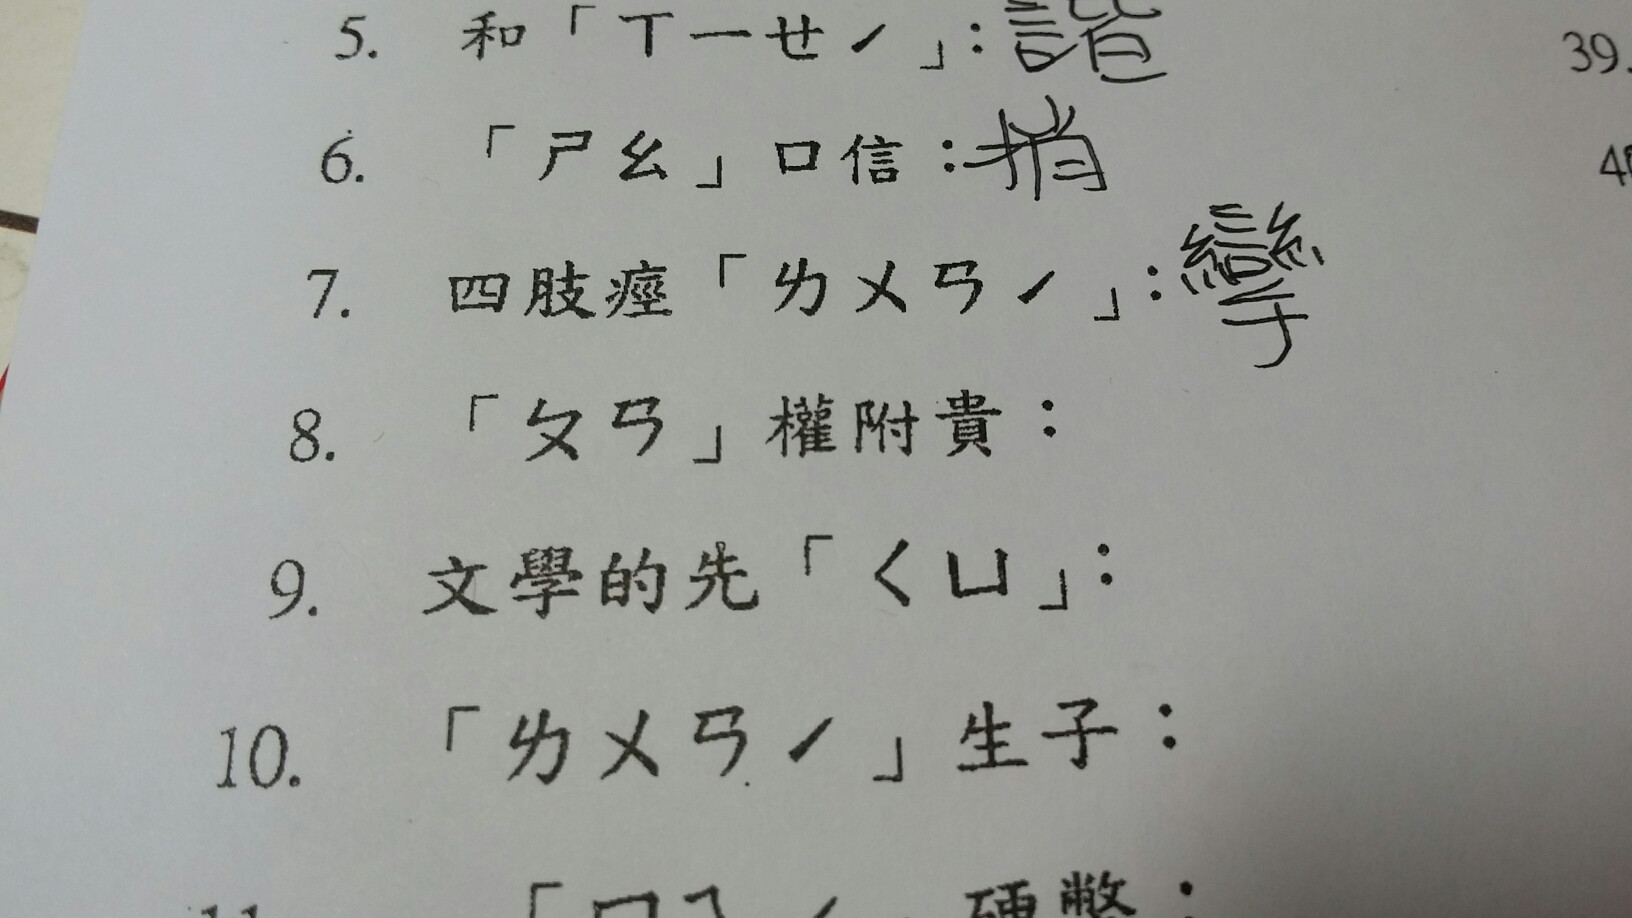 5. 和「ㄒㄧㄝˊ」:諧
39.
6. 「ㄕㄠ」口信:捎
7. 四肢痙「ㄌㄨㄢˊ」:攣
8. 「ㄆㄢ」權附貴:
9. 文學的先「ㄑㄩ」:
10. 「ㄌㄨㄢˊ」生子:
11. 硬幣: